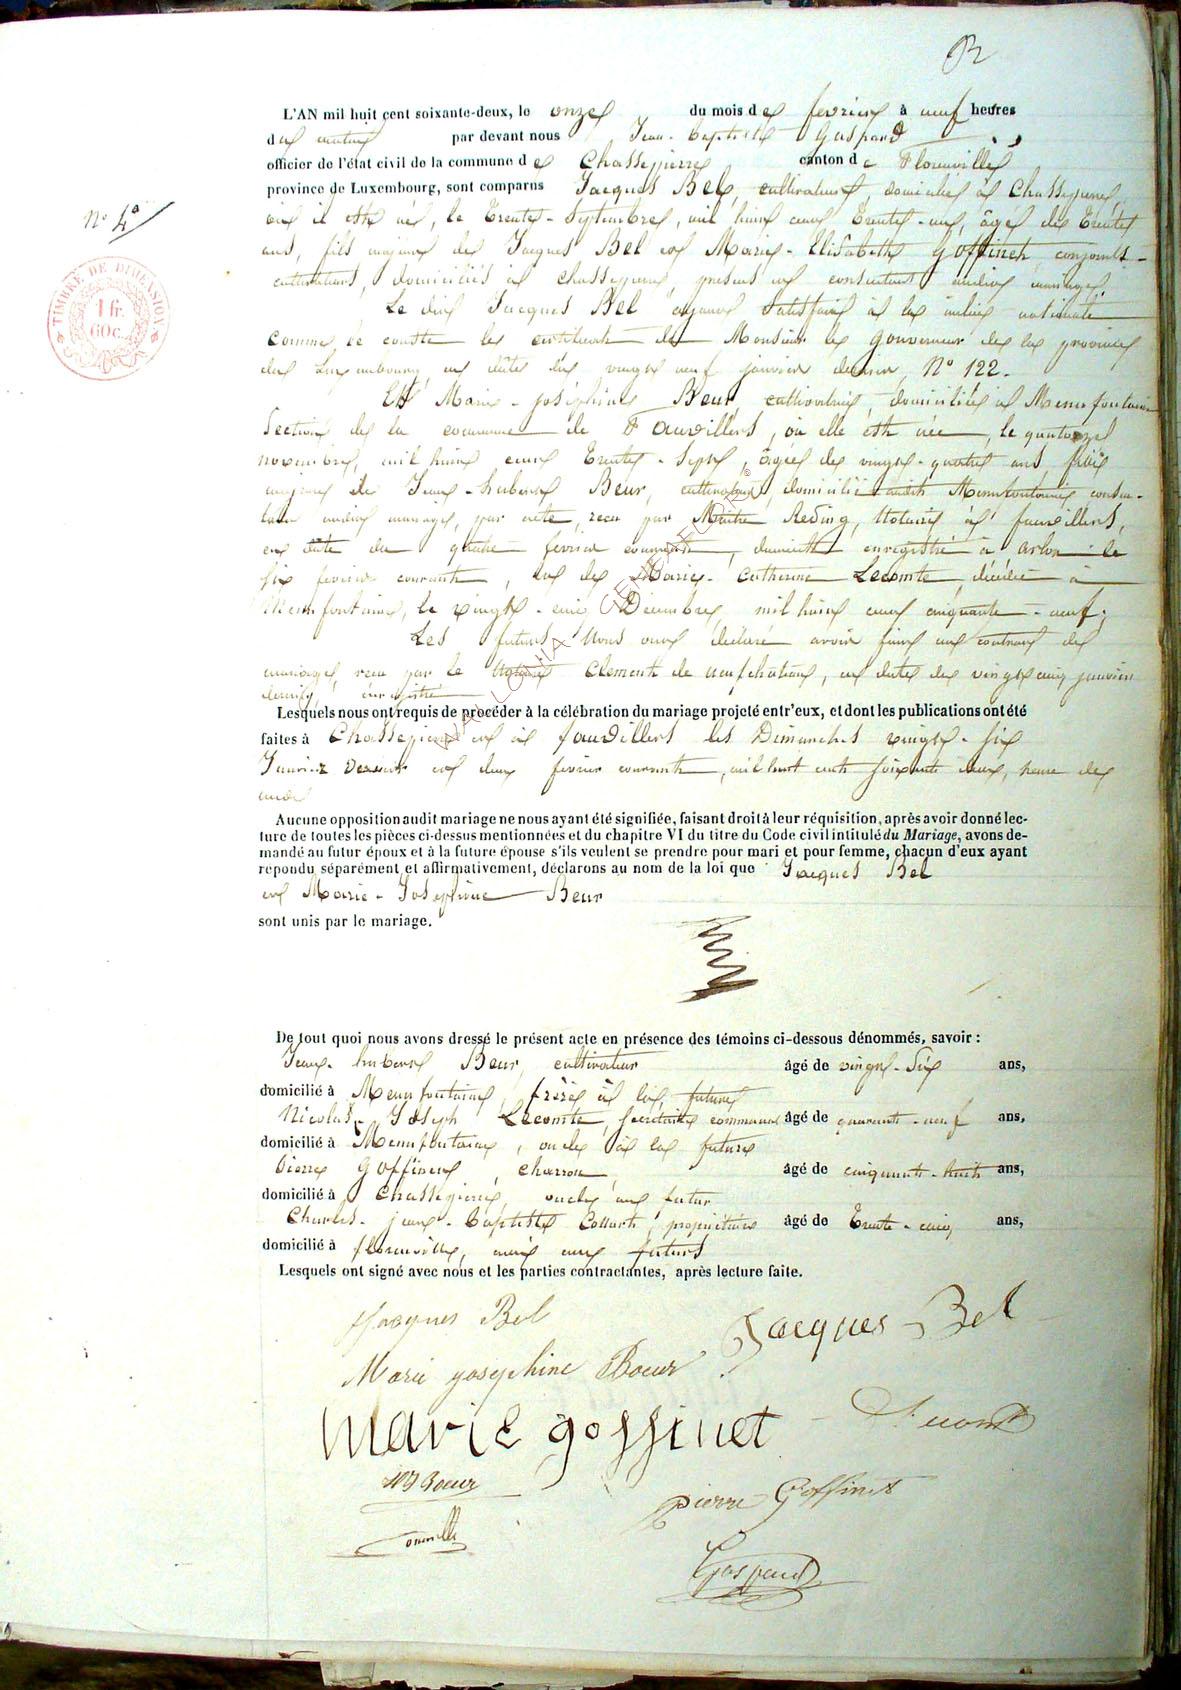 N° 4
TIMBRE DE DIMENSION
1 fr.
60 c.
L'AN mil huit cent soixante-deux, le onze du mois de fevrier à neuf heures
du matin par devant nous Jean-Baptiste Gaspard
officier de l'état civil de la commune de Chassepierre canton de Florenville
province de Luxembourg, sont comparus Jacques Bel, cultivateur, domicilié à Chassepierre,
où il est né, le trente-septembre, mil huit cent trente-un, âgé de trente
ans, fils majeur de Jacques Bel et Marie-Elisabeth Goffinet, conjoints-
cultivateurs, domiciliés à Chassepierre, présens et consentans audit mariage.
Le dit Jacques Bel ayant satisfait à la milice nationale
comme le conste le certificat de Monsieur le Gouverneur de la province
de Luxembourg en date du vingt neuf janvier dernier, N° 122.
Et Marie-Joséphine Beur cultivatrice, domiciliée à Menufontaine
section de la commune de Fauvillers, où elle est née, le quatorze
novembre, mil huit cent trente-sept, âgée de vingt-quatre ans fille
majeure de Jean-hubert Beur, cultivateur, domicilié audit Menufontaine consen-
tant audit mariage, par acte, reçu par Maître Reding, Notaire à fauvillers,
en date du quatre fevrier courant, dument enregistré à arlon le
six fevrier courant, et de Marie-Catherine Lecomte, décédée à
Menufontaine, le vingt-cinq Décembre, mil huit cent cinquante-neuf;
Les futurs Nous ont déclaré avoir fait un contrat de
mariage, reçu par le Notaire Clement de neufchateau, en date du vingt cinq janvier
dernier, enregistré
Lesquels nous ont requis de procéder à la célébration du mariage projeté entr'eux, et dont les publications ont été
faites à Chassepierre et à fauvillers les Dimanches vingt-six
Janvier dernier et deux fevrier courant, mil huit cent soixante deux, heure de
midi
Aucune opposition audit mariage ne nous ayant été signifiée, faisant droit à leur réquisition, après avoir donné lec-
ture de toutes les pièces ci-dessus mentionnées et du chapitre VI du titre du Code civil intitulé du Mariage, avons de-
mandé au futur époux et à la future épouse s'ils veulent se prendre pour mari et pour femme, chacun d'eux ayant
répondu séparément et affirmativement, déclarons au nom de la loi que Jacques Bel
et Marie-Joséphine Beur
sont unis par le mariage.
De tout quoi nous avons dressé le présent acte en présence des témoins ci-dessous dénommés, savoir :
Jean-hubert Beur, cultivateur âgé de vingt-six ans,
domicilié à Menufontaine, frère à la future
Nicolas-Joseph Lecomte, secrétaire communal âgé de quarante-neuf ans,
domicilié à Menufontaine, oncle à la future
Pierre Goffinet, charron âgé de cinquante-huit ans,
domicilié à Chassepierre, oncle au futur
Charles-jean-Baptiste Collart, propriétaire âgé de trente-cinq ans,
domicilié à florenville, ami aux futurs
Lesquels ont signé avec nous et les parties contractantes, après lecture faite.
Jacques Bel
Jacques Bel
Marie josephine Boeur
marie goffinet
Lecomte
Boeur
pierre Goffinet
Gaspard
WALLONIA GENEALOGIE ©